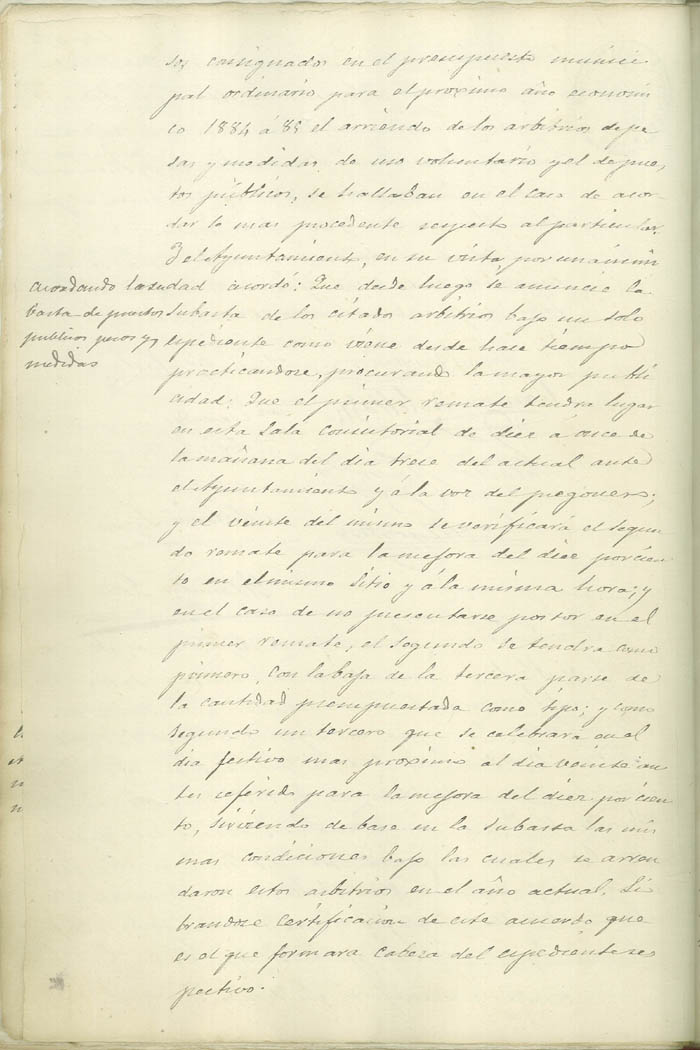 sos consignados en el presupuesto munici
pal ordinario para el proximo año economi
co 1884 á 85 el arriendo de los arbitrios de pe
sas y medidas de uso voluntario y el de pues
tos públicos, se hallaban en el caso de acor
dar lo mas procedente respecto al particular.
Y el Ayuntamiento, en su vista, por unanimi
dad acordó: Que desde luego se anuncie la
subasta de los citados arbitrios bajo un solo
espediente como viene desde hace tiempo
practicandose, procurando la mayor publi
cidad: Que el primer remate tendrá lugar
en esta Sala Consistorial de diez á once de
la mañana del dia trece del actual ante
el Ayuntamiento y á la voz del pregonero;
y el veinte del mismo se verificará el segun
do remate para la mejora del diez por cien
to en el mismo sitio y á la misma hora; y
en el caso de no presentarse postor en el
primer remate, el segundo se tendra como
primero, con la baja de la tercera parte de
la cantidad presupuestada como tipo; y como
segundo un tercero que se celebrará en el
dia festivo mas proximo al dia veinte an
tes referido para la mejora del diez por cien
to, sirviendo de base en la subasta las mis
mas condiciones bajo las cuales se arren
daron estos arbitrios en el año actual. Li
brandose certificacion de este acuerdo que
es el que formara cabeza del espediente res
pectivo.
acordando la su
basta de puestos
publicos pesos y
medidas